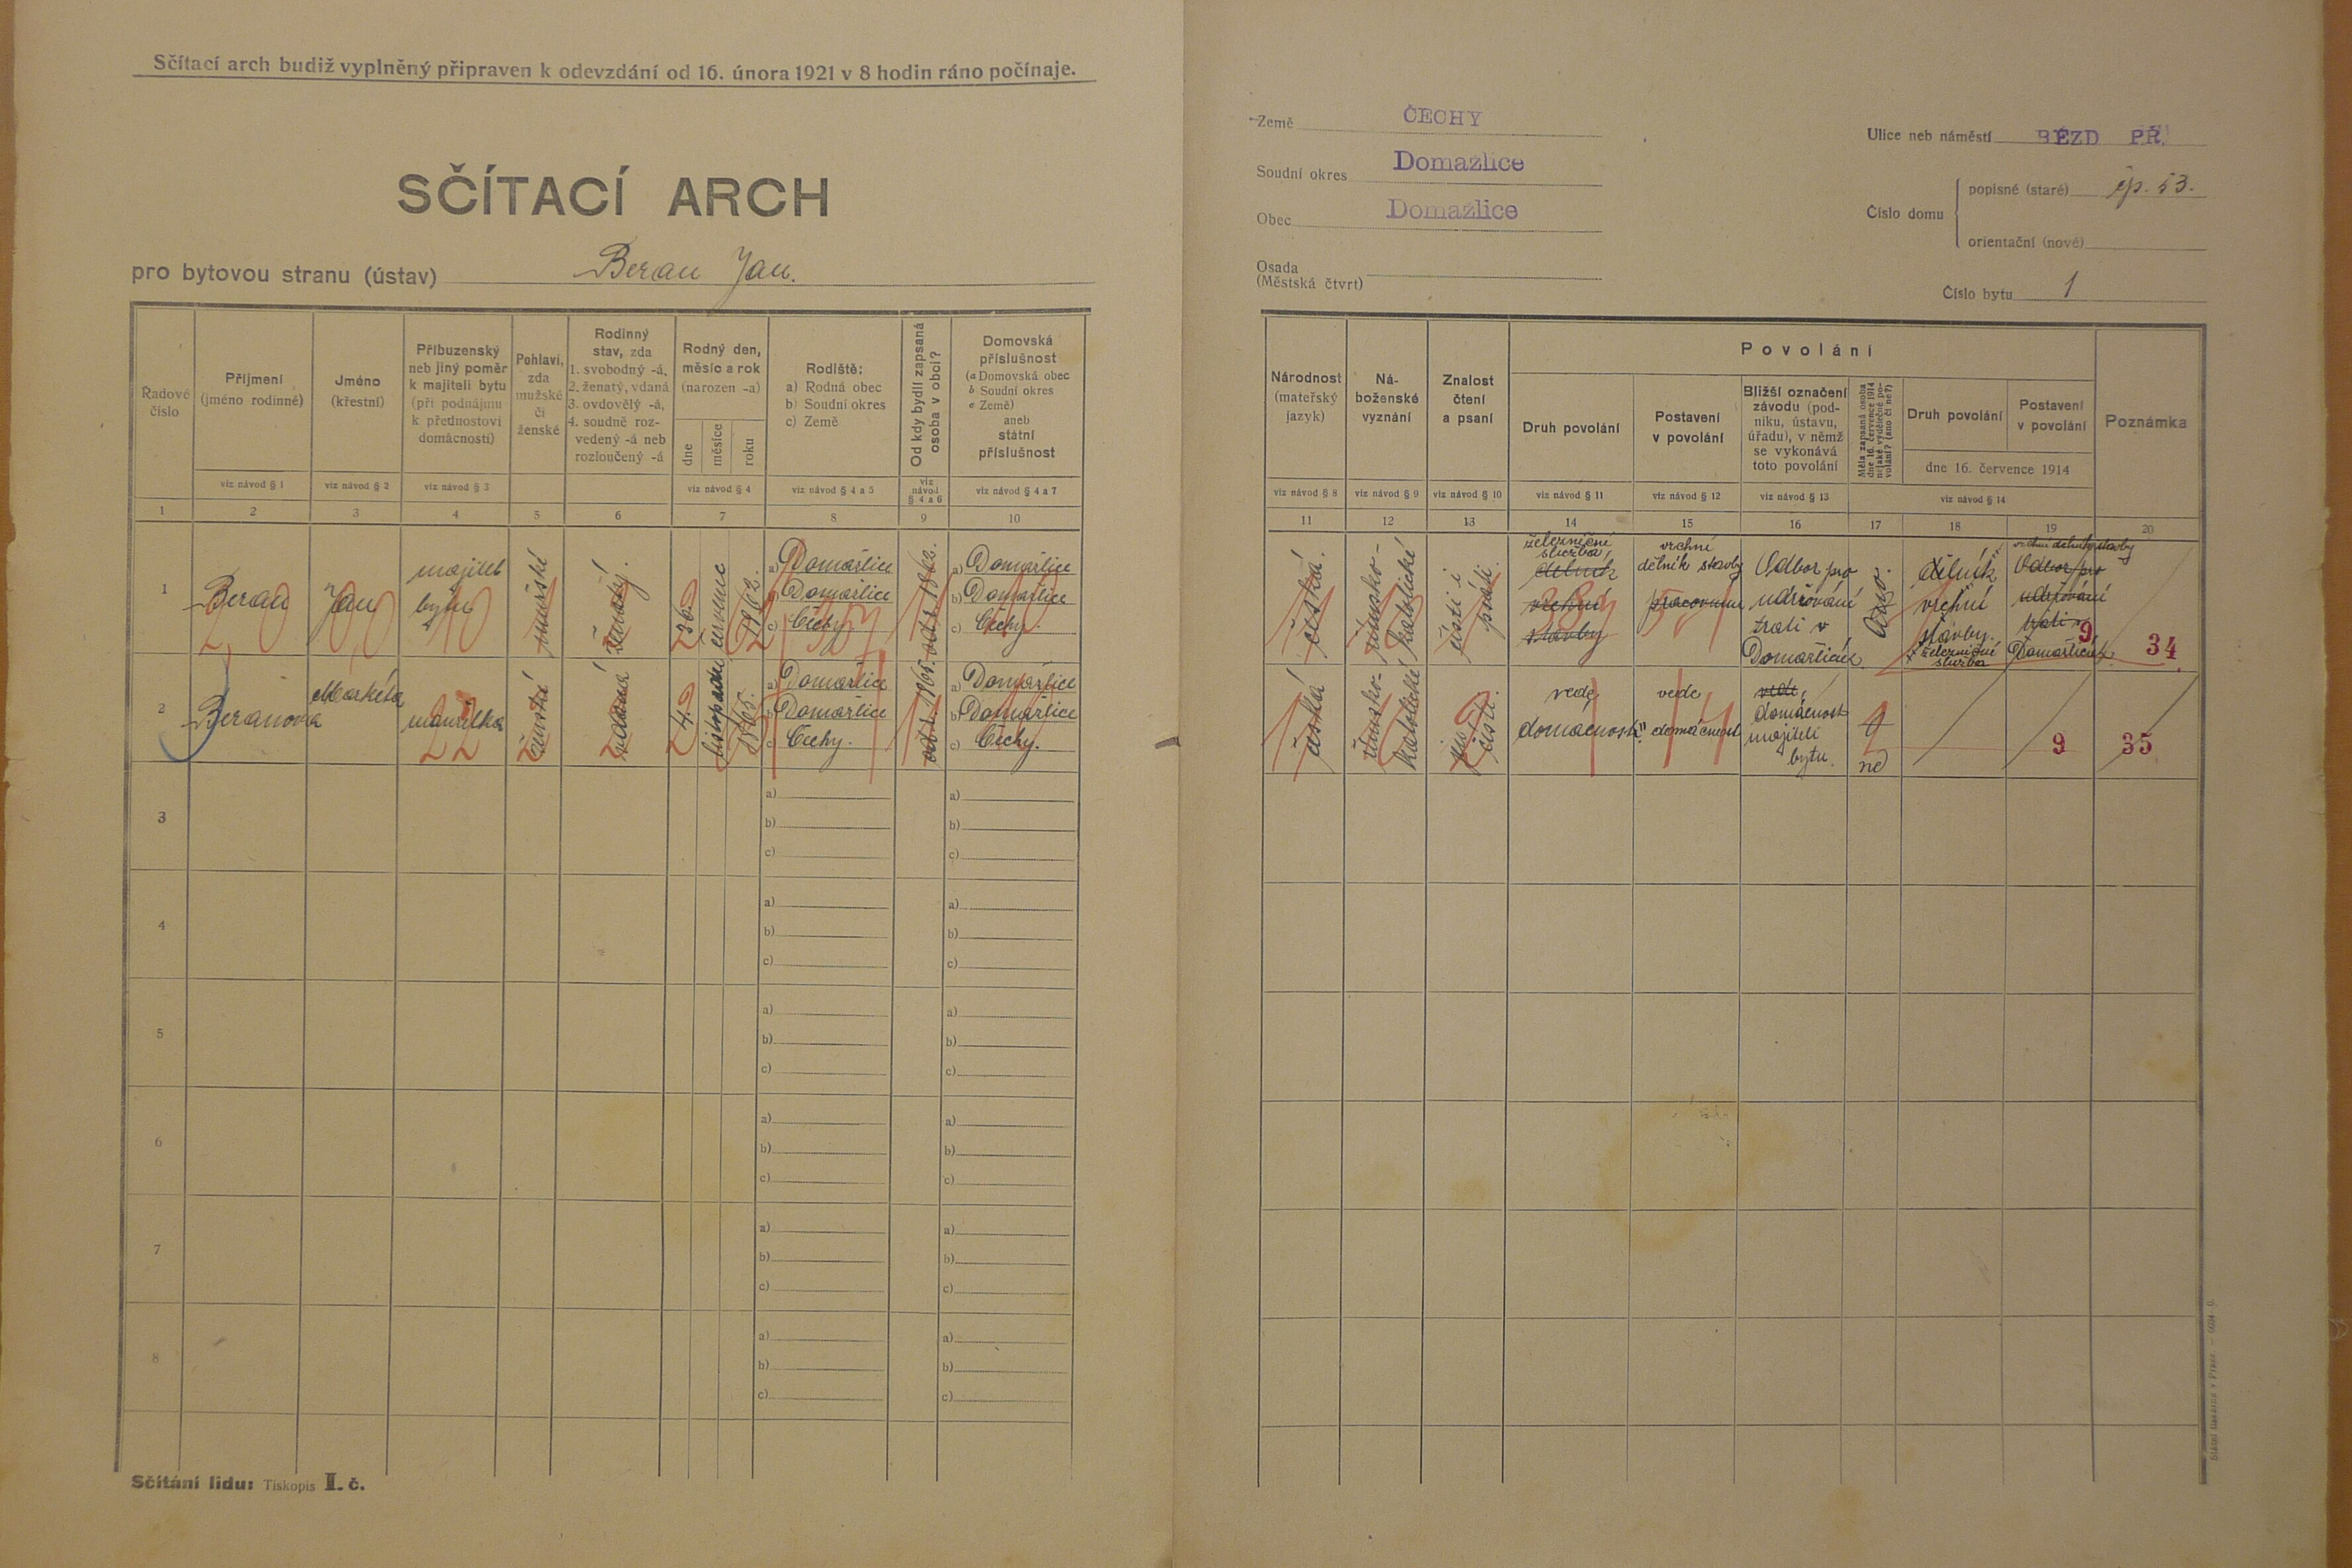 Sčítací arch budiž vyplněný připraven k odevzdání od 16. února 1921 v 8 hodin ráno počínaje.
SČÍTACÍ ARCH
pro bytovou stranu (ústav) Beran Jan.
Řadové číslo
Příjmení
(jméno rodinné)
Jméno
(křestní)
Příbuzenský
neb jiný poměr
k majiteli bytu
(při podnájmu
k přednostovi
domácnosti)
Pohlaví,
zda
mužské
či
ženské
Rodinný
stav, zda
1. svobodný -á,
2. ženatý, vdaná
3. ovdovělý -á,
4. soudně roz-
vedený -á neb
rozloučený -á
Rodný den,
měsíc a rok
(narozen -a)
dne
měsíce
roku
Rodiště:
a) Rodná obec
b) Soudní okres
c) Země
Od kdy bydlí zapsaná
osoba v obci?
Domovská
příslušnost
(a Domovská obec
b Soudní okres
c Země)
aneb
státní
příslušnost
viz návod § 1
viz návod § 2
viz návod § 3
viz návod § 4
viz návod § 4 a 5
viz
návod
§ 4 a 6
viz návod § 4 a 7
1 2 3 4 5 6 7 8 9 10
1
Beran
Jan
majitel
bytu
mužské
ženatý.
30.
července
1862.
a) Domažlice
b) Domažlice
c) Čechy.
od r. 1862.
a) Domažlice
b) Domažlice
c) Čechy.
2
Beranova
Markéta
manželka
ženská
vdaná
4.
listopadu
1865.
a) Domažlice
b) Domažlice
c) Čechy.
od r. 1865.
a) Domažlice
b) Domažlice
c) Čechy.
22
3
a)
b)
c)
a)
b)
c)
4
a)
b)
c)
a)
b)
c)
5
a)
b)
c)
a)
b)
c)
6
a)
b)
c)
a)
b)
c)
7
a)
b)
c)
a)
b)
c)
8
a)
b)
c)
a)
b)
c)
Sčítání lidu: Tiskopis II. č.
Země ČECHY
Soudní okres Domažlice
Obec Domažlice
Osada
(Městská čtvrt)
Ulice neb náměstí BĚZD PŘ.
Číslo domu
popisné (staré) čp. 53.
orientační (nové)
Číslo bytu 1
Národnost
(mateřský
jazyk)
Ná-
boženské
vyznání
Znalost
čtení
a psaní
Povolání
Druh povolání
Postavení
v povolání
Bližší označení
závodu (pod-
niku, ústavu,
úřadu), v němž
se vykonává
toto povolání
Měla zapsaná osoba
dne 16. července 1914
nějaké výdělečné po-
volání? (ano či ne?)
Druh povolání
Postavení
v povolání
dne 16. července 1914
Poznámka
viz návod § 8
viz návod § 9
viz návod § 10
viz návod § 11
viz návod § 12
viz návod § 13
viz návod § 14
11 12 13 14 15 16 17 18 19 20
česká.
římsko-
katolické
čísti i
psáti.
železniční
služba,
dělník
vrchní
stavby
vrchní
dělník stavby
Odbor pro
udržování
trati v
Domažlicích.
Ano.
dělník
vrchní
stavby.
železniční
služba
vrchní dělník stavby
Odbor pro
udržování
trati v
Domažlicích
9
34
česká
římsko-
katolické
čísti.
vede
domácnost
vede
domácnost
vede
domácnost
majiteli
bytu.
ne
9
35